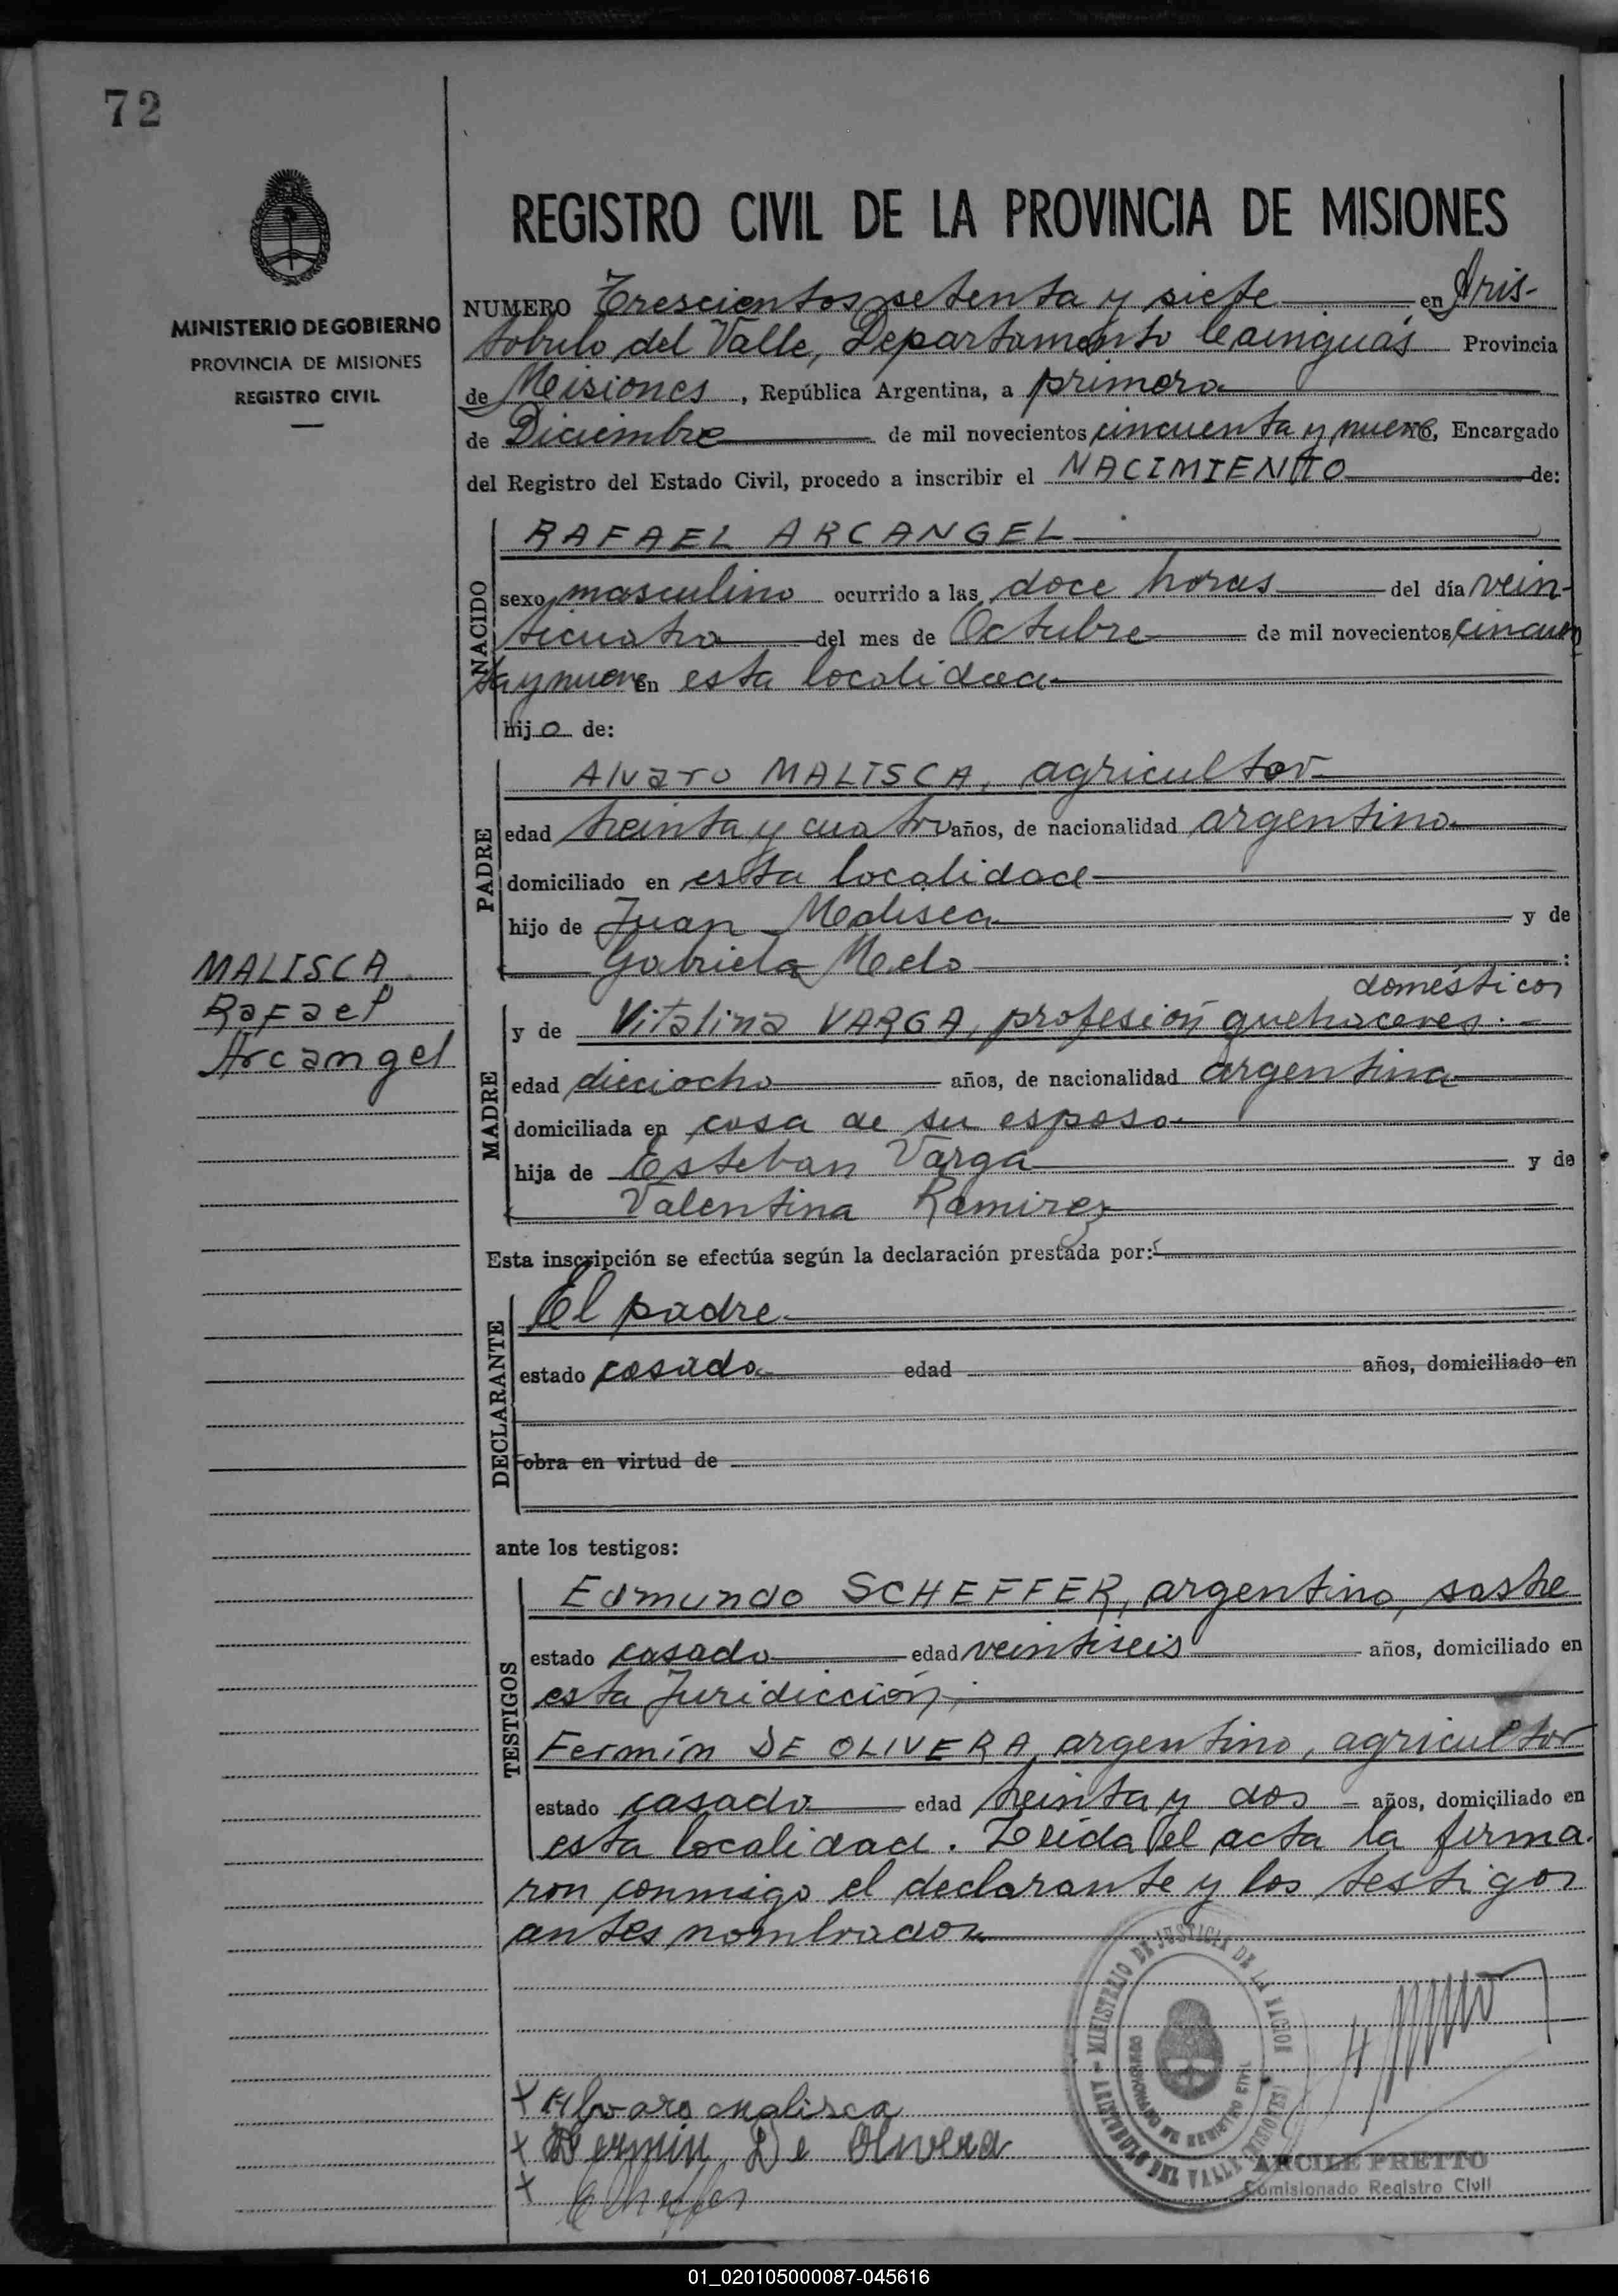 72
MINISTERIO DE GOBIERNO
PROVINCIA DE MISIONES
REGISTRO CIVIL
REGISTRO CIVIL DE LA PROVINCIA DE MISIONES
NUMERO Trescientos setenta y siete en Aris-
tobulo del Valle, Departamento Cainguás Provincia
de Misiones, República Argentina, a primero
de Diciembre de mil novecientos cincuenta y nueve, Encargado
del Registro del Estado Civil, procedo a inscribir el NACIMIENTO de:
NACIDO
RAFAEL ARCANGEL
sexo masculino ocurrido a las doce horas del día vein-
ticuatro del mes de Octubre de mil novecientos cincuen
ta y nueve en esta localidad
hijo de:
PADRE
Alvaro MALISCA, agricultor
edad treinta y cuatro años, de nacionalidad argentino
domiciliado en esta localidad
hijo de Juan Malisca y de
Gabriela Melo :
MALISCA
Rafael
Arcangel
MADRE
domésticos
y de Vitalina VARGA, profesión quehaceres.-
edad dieciocho años, de nacionalidad argentina
domiciliada en casa de su esposo
hija de Esteban Varga y de
Valentina Ramirez
Esta inscripción se efectúa según la declaración prestada por:
DECLARANTE
El padre
estado casado edad años, domiciliado en
obra en virtud de
ante los testigos:
TESTIGOS
Edmundo SCHEFFER, argentino, sastre
estado casado edad veintiseis años, domiciliado en
esta Juridicción,
Fermín DE OLIVERA, argentino, agricultor
estado casado edad treinta y dos años, domiciliado en
esta localidad. Leida el acta la firma.
ron conmigo el declarante y los testigos
antes nombrados
MINISTERIO DE JUSTICIA DE LA NACION
COMISIONADO DE REGISTRO CIVIL
ARISTOBULO DEL VALLE (MISIONES)
x Alvaro Malisca
x Fermin De Olivera
x EScheffer
ARCILE PRETTO
Comisionado Registro Civil
01_020105000087-045616